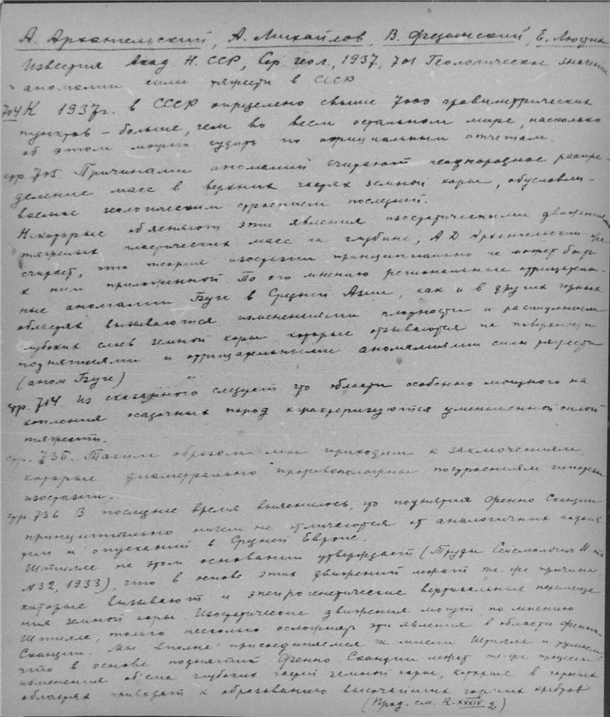 А. Архангельский, А. Михайлов, В. Федынский, Е. Люстих
Известия Акад Н. ССР, Сер. геол., 1937, 701 Геологическое значение
аномалии силы тяжести в СССР
704 К 1937г. в СССР определено свыше 7000 гравиметрических
пунктов – больше, чем во всем остальном мире, насколько
об этом можно судить по официальным отчетам.
стр. 705. Причинами аномалий считают неоднородное распре-
деление масс в верхних частях земной коры, обусловли-
ваемые геологическим строением последней.
Некоторые об'ясняют эти явления изостатическими движениями
масс на глубине, А Д Архангельский
считает, что теория изостазии принципиально не может быть
к ним приложенной По его мнению региональные отрицатель-
ные аномалии Буге в Средней Азии, как и в других горных
областях вызываются изменениями плотности и расширением
глубоких слоев земной коры которые отзываются на поверхности
поднятиями и отрицательными аномалиями силы тяжести
(аном Буге)
стр. 714. Из сказанного следует что области особенно мощного на
копления осадочных пород характеризуются уменьшенной силой
тяжести.
стр. 735. Таким образом мы приходим к заключениям,
которые диаметрально противоположны построениям гипотезы
изостазии.
стр 736 В последнее время выяснилось, что поднятия Фенно Скандии
принципиально ничем не отличаются от аналогичных поднятий
и опусканий в Средней Европе.
Штилле на этом основании утверждает (Труды Сейсмологич. Ин-та
№32, 1933), что в основе этих движений лежат те же причины
которые вызывают и эпейрогенические вертикальные перемеще
ния земной коры. Изостатические движения могут по мнению
Штилле, только несколько осложнять эти явления в области Фенно-
Скандии. Мы вполне присоединяемся к мысли Штилле и думаем,
что в основе поднятий Фенно Скандии лежат те же процессы
изменения об'ема глубоких частей земной коры, которые в горных
областях приводят к образованию высочайших горных хребтов
(Прод. см. R-XXXIV 2)